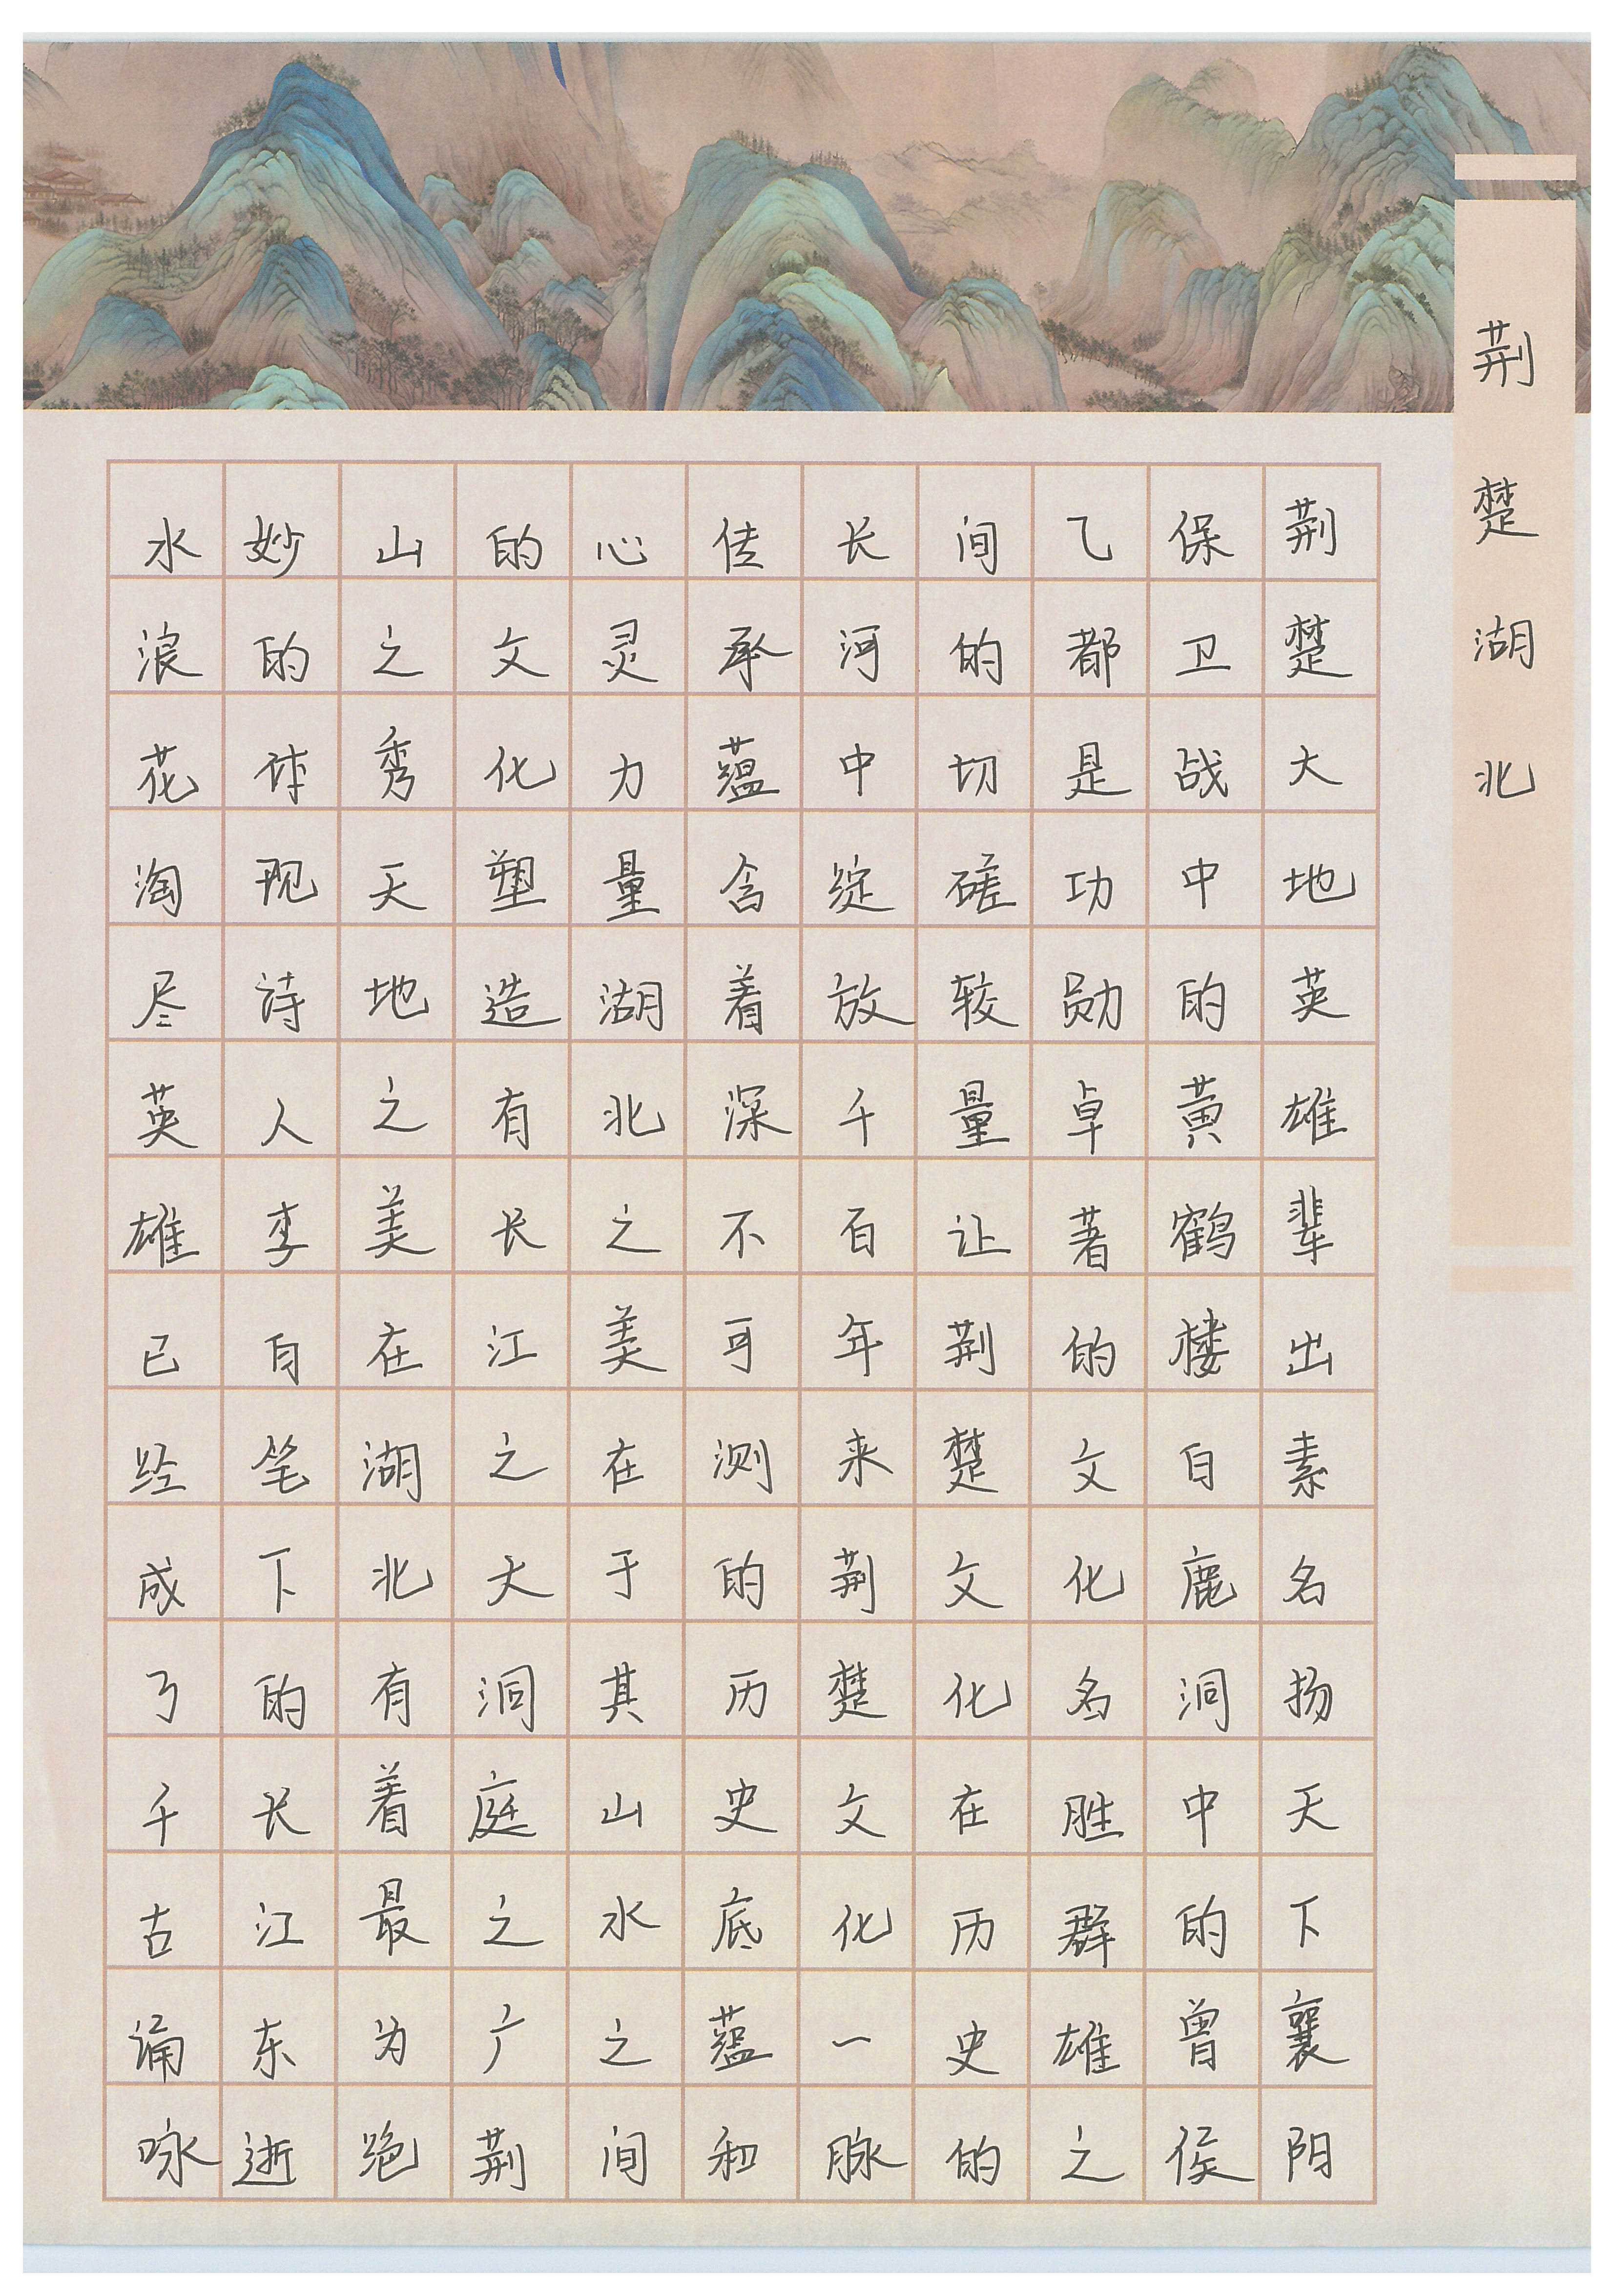 荆楚湖北
荆楚大地英雄辈出素名扬天下襄阳
保卫战中的黄鹤楼白鹿洞中的曾侯
乙都是功勋卓著的文化名胜群雄之
间的切磋较量让荆楚文化在历史的
长河中绽放千百年来荆楚文化一脉
传承蕴含着深不可测的历史底蕴和
心灵力量湖北之美在于其山水之间
的文化塑造有长江之大洞庭之广荆
山之秀天地之美在湖北有着最为绝
妙的体现诗人李白笔下的长江东逝
水浪花淘尽英雄已经成了千古诵咏